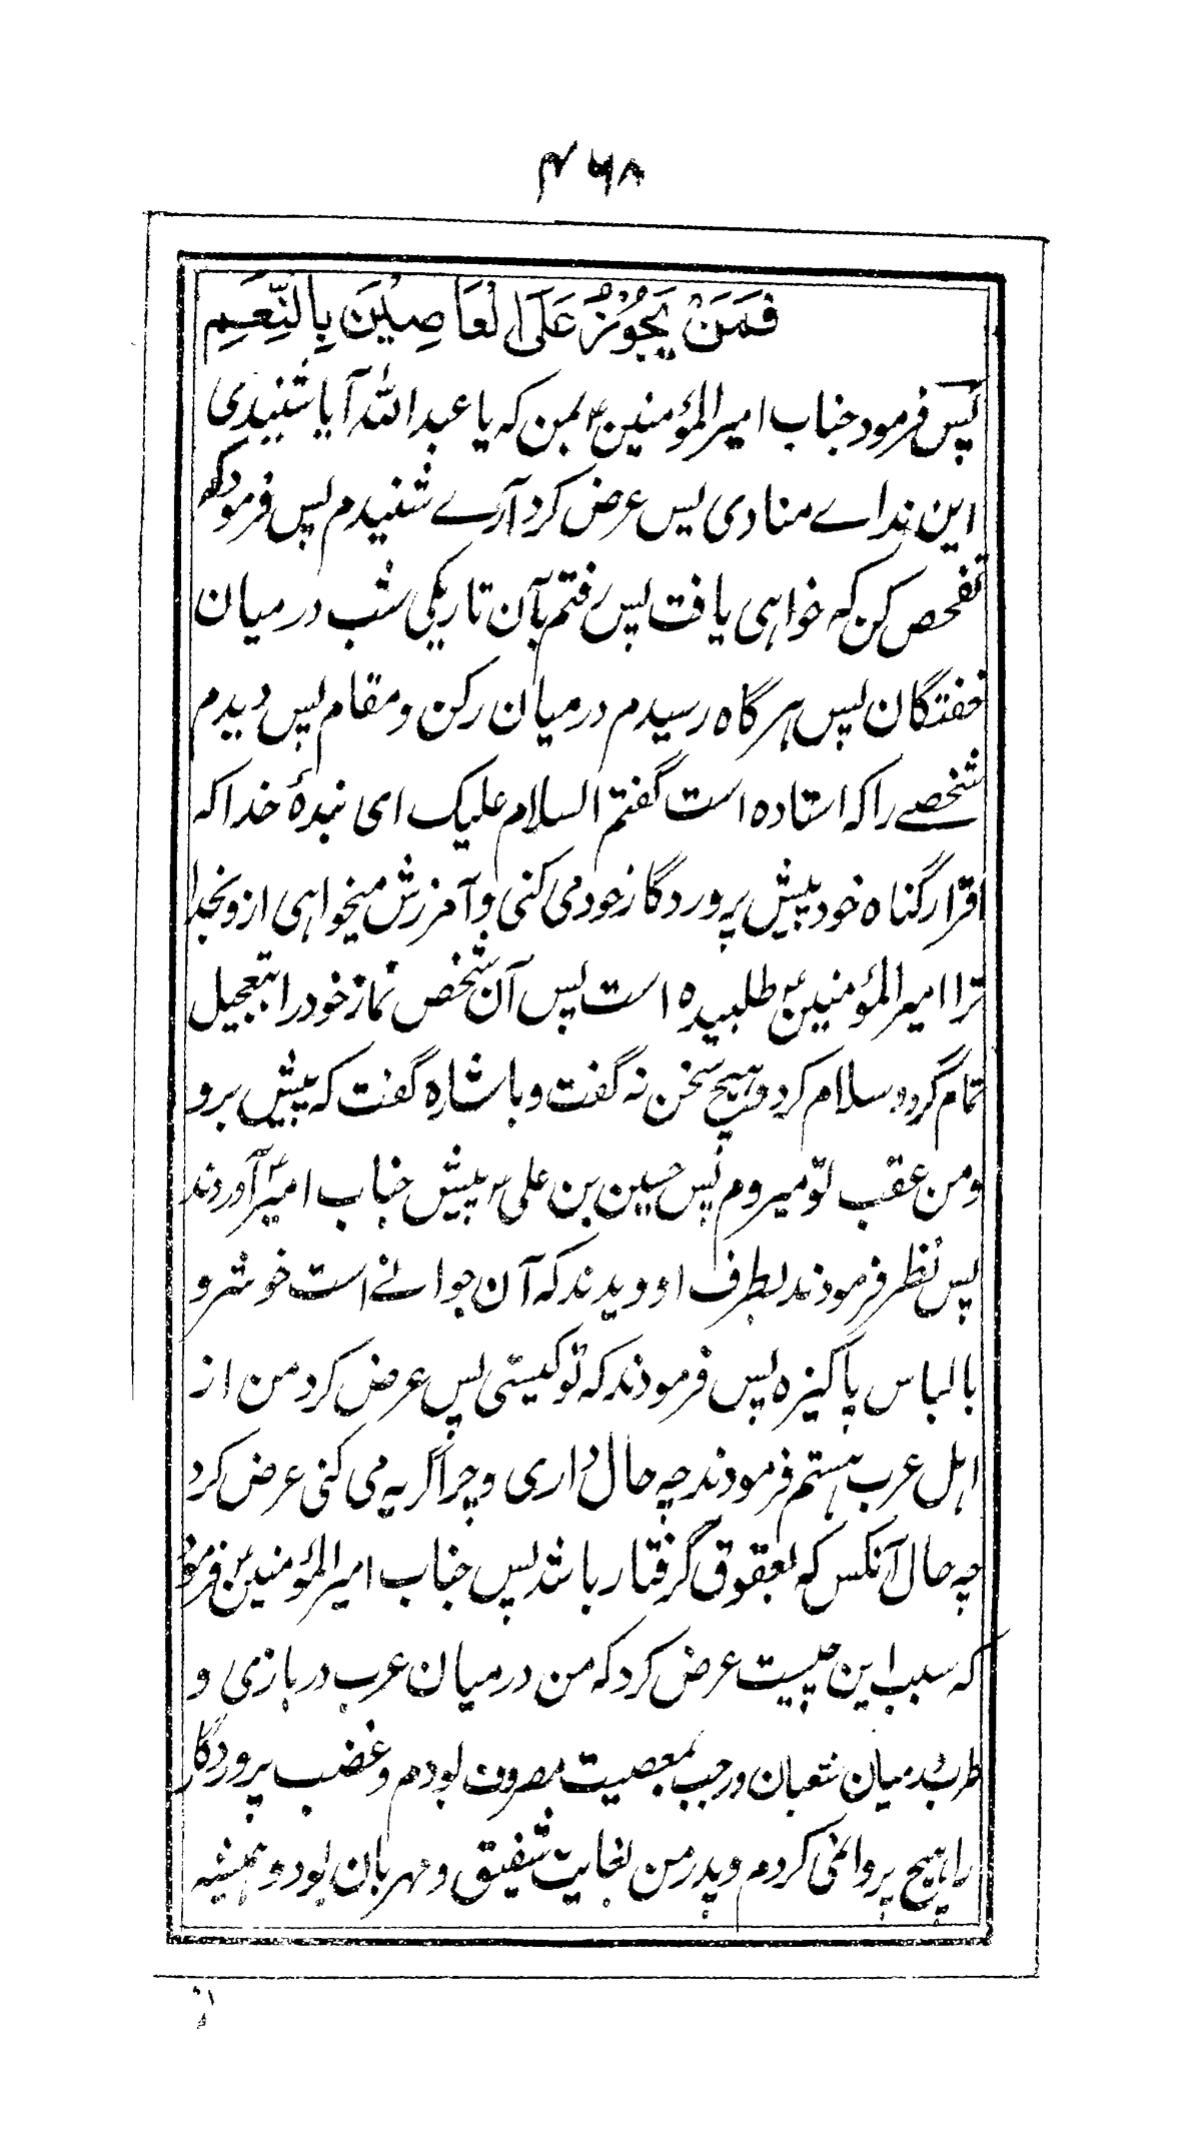 ۴۶۸
فَمَنْ يَجُوْزُ عَلَى الْعَاصِيْنَ بِالنِّعَمِ
پس فرمود جناب امیرالمؤمنینؑ بمن که یا عبداللّٰه آیا شنیدی
این نداے منادی پس عرض کرد آرے شنیدم پس فرمود که
تفحص کن که خواهی یافت پس رفتم بآن تاریکی شب درمیان
خفتگان پس هرگاه رسیدم درمیان رکن و مقام پس دیدم
شخصے را که استاده است گفتم السلام علیک ای بندهٔ خدا که
اقرار گناه خود پیش پروردگار خود می کنی و آمرزش میخواهی از و بخدا
ترا امیرالمؤمنینؑ طلبیده است پس آن شخص نماز خود را بتعجیل
تمام کرد و سلام کرد و هیچ سخن نه گفت و باشاره گفت که پیش برو
و من عقب تو میروم پس حسین بن علیؑ پیش جناب امیرؑ آوردند
پس نظر فرمودند بطرف او و دیدند که آن جوانے است خوشرو
با لباس پاکیزه پس فرمودند که تو کیستی پس عرض کرد من از
اهل عرب هستم فرمودند چه حال داری و چرا گریه می کنی عرض کرد
چه حال آنکس که بعقوق گرفتار باشد پس جناب امیرالمؤمنینؑ فرمود
که سبب این چیست عرض کرد که من درمیان عرب در بازی و
طرب درمیان شعبان و رجب بمعصیت مصروف بودم و غضب پروردگار
را هیچ پروا نمی کردم و پدر من بغایت شفیق و مهربان بود و همیشه
از